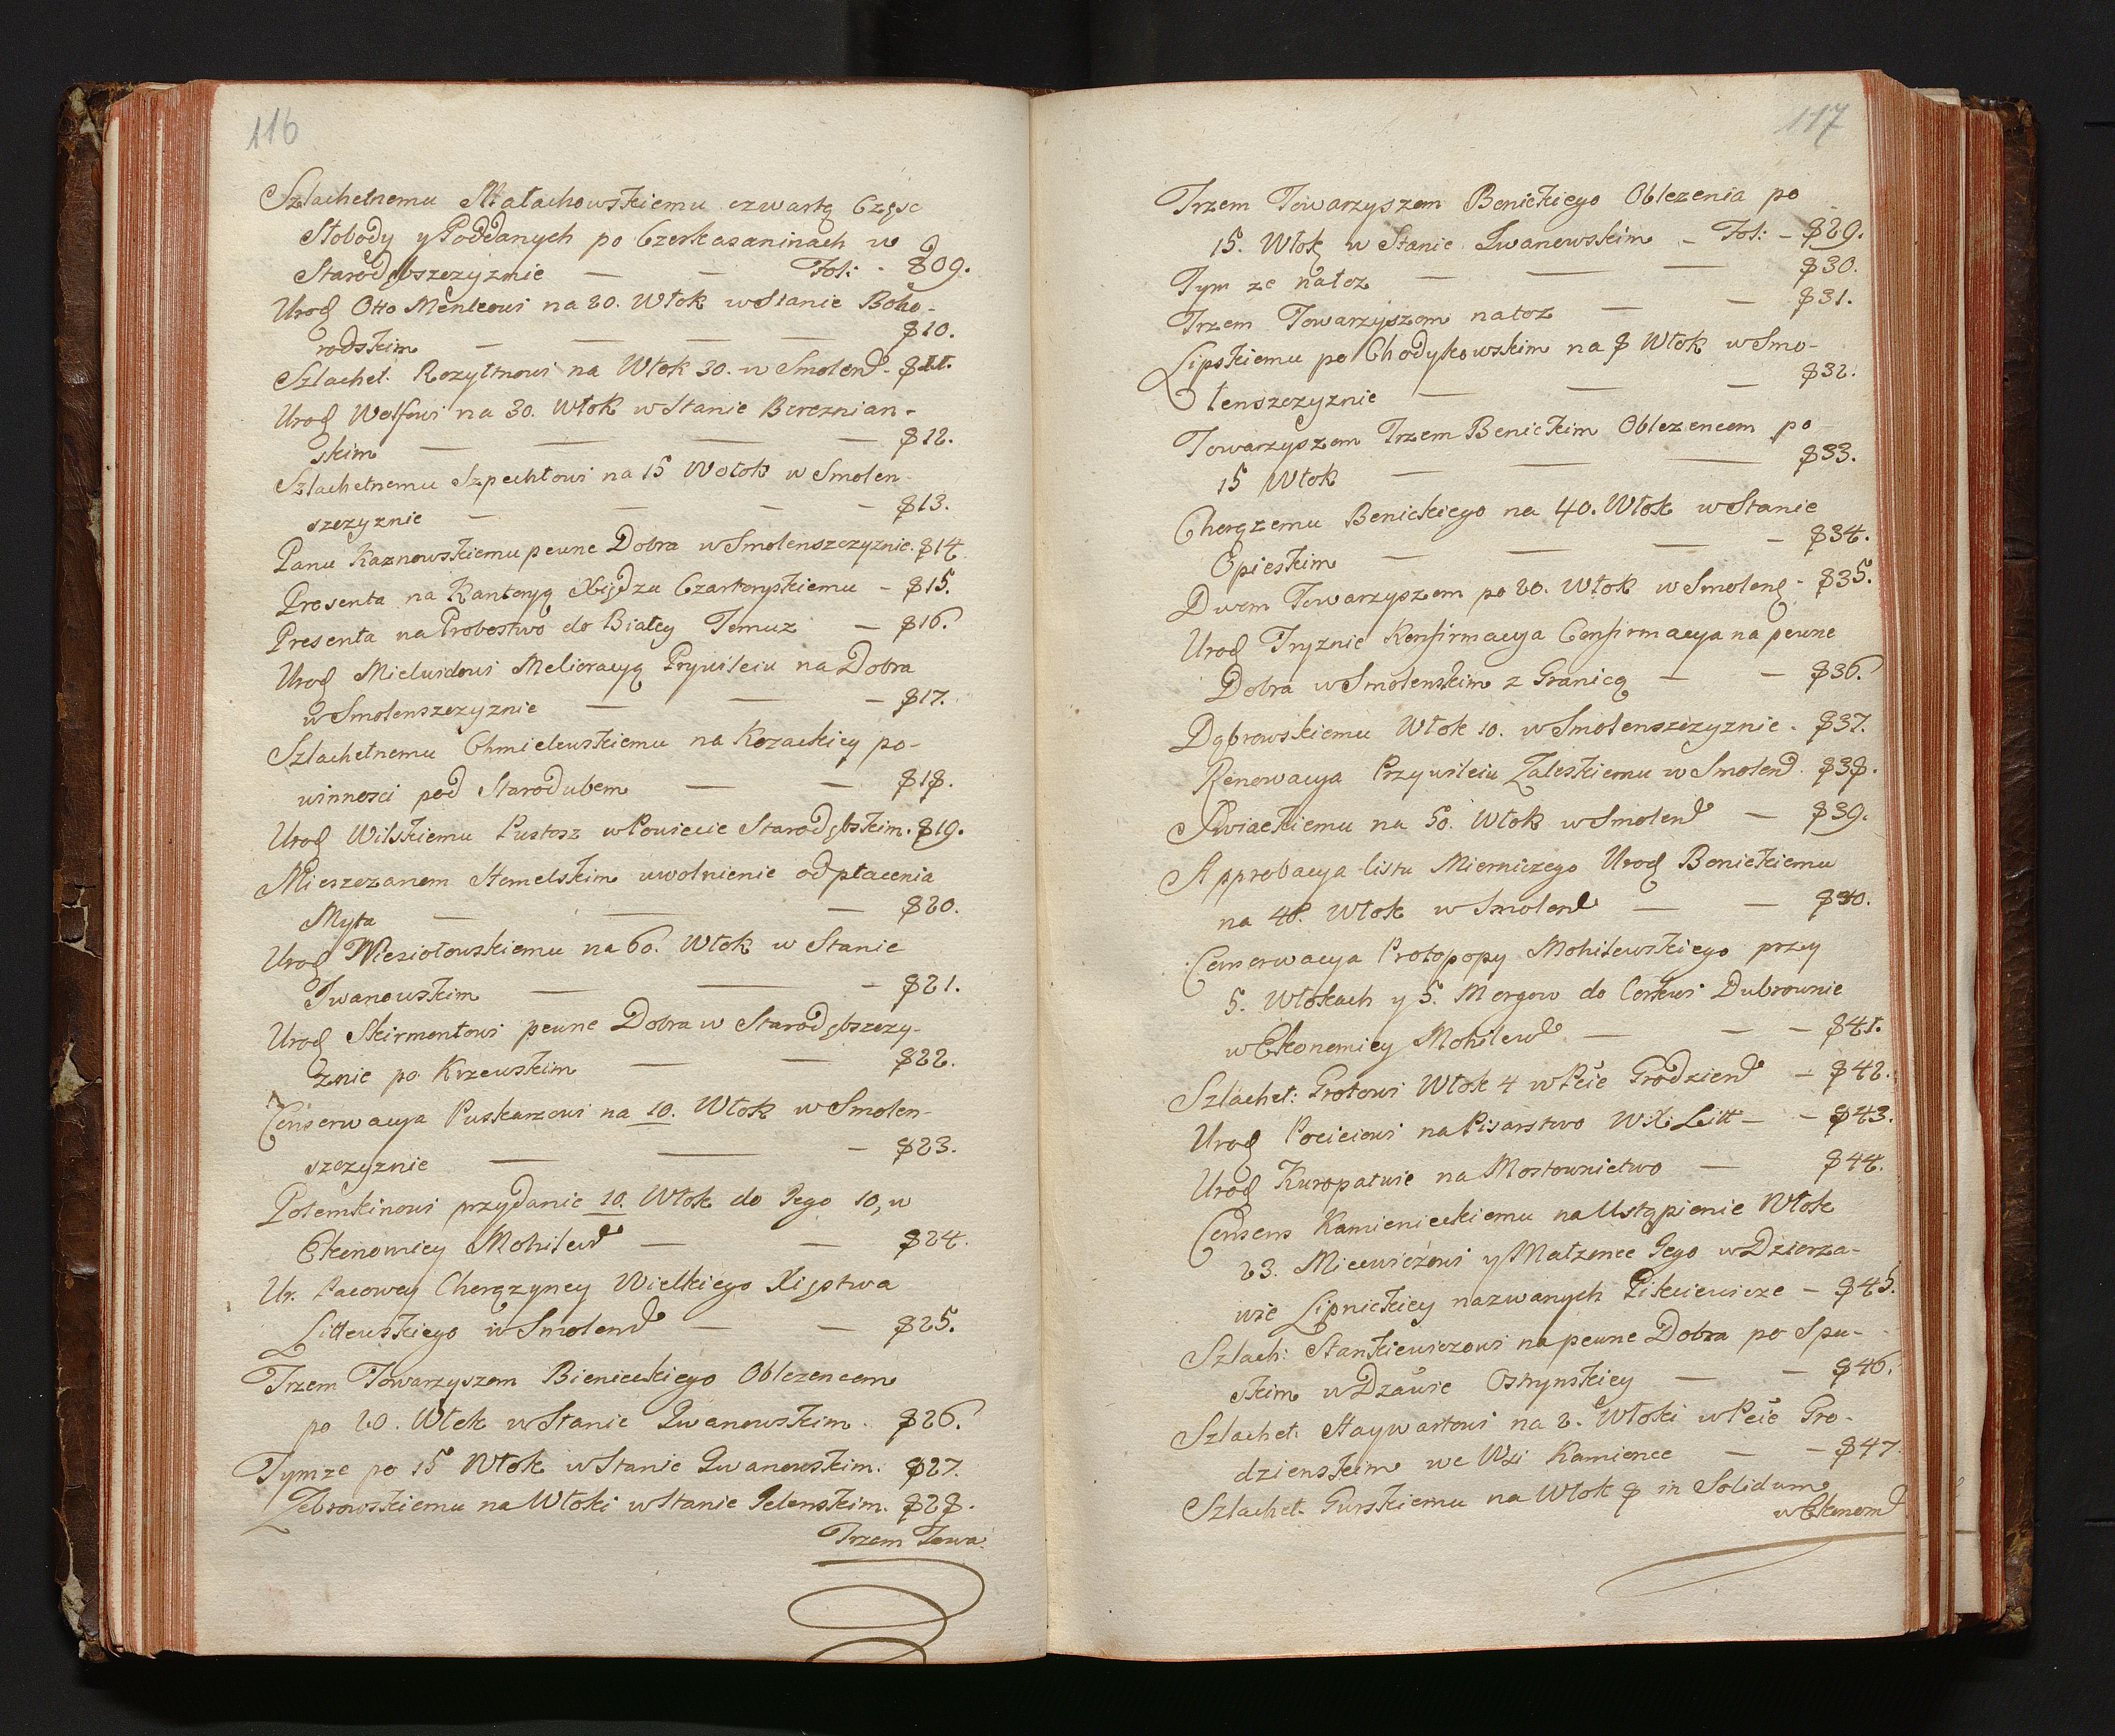 116
Szlachetnemu Małachowskiemu czwartą Częsc
Słobody y Poddanych po Czerkasaninach w
Starodubszczyznie — — Fol: - 809.
Urod Otto Menteowi na 20. Włok w Stanie Boho-
rodskim — — — — 810.
Szlachet. Rozytnowi na Włok 30. w Smolend. 811.
Urod Wolfowi na 30. Włok w Stanie Bereznian-
skim — — — — 812.
Szlachetnemu Szpechtowi na 15 Włok w Smolen-
szczyznie — — — — 813.
Panu Kaznowskiemu pewne Dobra w Smolenszczyznie. 814
Presenta na Kantoryą Xiędzu Czartoryskiemu — 815.
Presenta na Probostwo do Białey Temuz — 816.
Urod Mielwidowi Melioracyą Przywileiu na Dobra
w Smolenszczyznie — — — 817.
Szlachetnemu Chmielewskiemu na Kozackiey po-
winnosci pod Starodubem — — 818.
Urod Wilskiemu Pustosz w Powiecie Starodębskim. 819.
Mieszczanom Homelskim uwolnienie od płacenia
Myta — — — 820.
Urod Wiesiołowskiemu na 60. Włok w Stanie
Iwanowskim — — — 821.
Urod Skirmontowi pewne Dobra w Starodębszczy-
znie po Krzewskim — — 822.
Conserwacya Puskarzowi na 10. Włok w Smolen-
szczyznie — — — 823.
Potemkinowi przydanie 10. Włok do Jego 10, w
Ekonomiey Mohilewd — — 824.
Ur. Pacowey Chorązyney Wielkiego Xięstwa
Littewskiego w Smolend — — 825.
Trzem Towarzyszom Bienieckiego Oblezencom
po 20. Włok w Stanie Iwanowskim. 826.
Tymze po 15 Włok w Stanie Iwanowskim. 827.
Zebrowskiemu na Włoki w Stanie Jelenskim. 828.
Trzem Towa.
117
Trzem Towarzyszom Benickiego Oblezenia po
15. Włok w Stanie Iwanowskim — Fol: — 829.
Tym ze natoz — — — 830.
Trzem Towarzyszom natoz — — 831.
Lipskiemu po Chodykowskim na 8 Włok w Smo-
lenszczyznie — — — 832.
Towarzyszom Trzem Benickim Oblezencom po
15 Włok — — — 833.
Chorązemu Benickiego na 40. Włok w Stanie
Opieskim — — — — 834.
Dwom Towarzyszom po 20. Włok w Smolend - 835.
Urod Tryznie Konfirmacya Confirmacya na pewne
Dobra w Smolenskim z Granicą — — 836.
Dąbrowskiemu Włok 10. w Smolenszczyznie. 837.
Renowacya Przywileiu Zaleskiemu w Smolend. 838.
Kwiackiemu na 50. Włok w Smolend — 839.
Approbacya listu Mierniczego Urod Benickiemu
na 40. Włok w Smolend — — 840.
Conserwacya Protopopy Mohilewskiego przy
5. Włokach y 5. Morgow do Cerkwi Dubrownie
w Ekonomiey Mohilewd — — — 841.
Szlachet: Grotowi Włok 4 w Pcie Grodziend — 842.
Urod Pociciowi na Pisarstwo W. X. Litt — — 843.
Urod Kuropatwie na Mostownictwo — 844.
Consens Kamienieckiemu na Ustąpienie Włok
23. Micewiczowi y Małzonce Jego w Dzierza-
wie Lipnickiey nazwanych Pikciewicze — 845.
Szlach: Stankiewiczowi na pewne Dobra po Spu-
skim w Dzawie Ostrynskiey — — 846.
Szlachet. Haywartowi na 2. Włoki w Pcie Gro-
dzienskim we Wsi Kamionce — — 847.
Szlachet. Gurskiemu na Włok 8 in Solidum
w Ekonomd